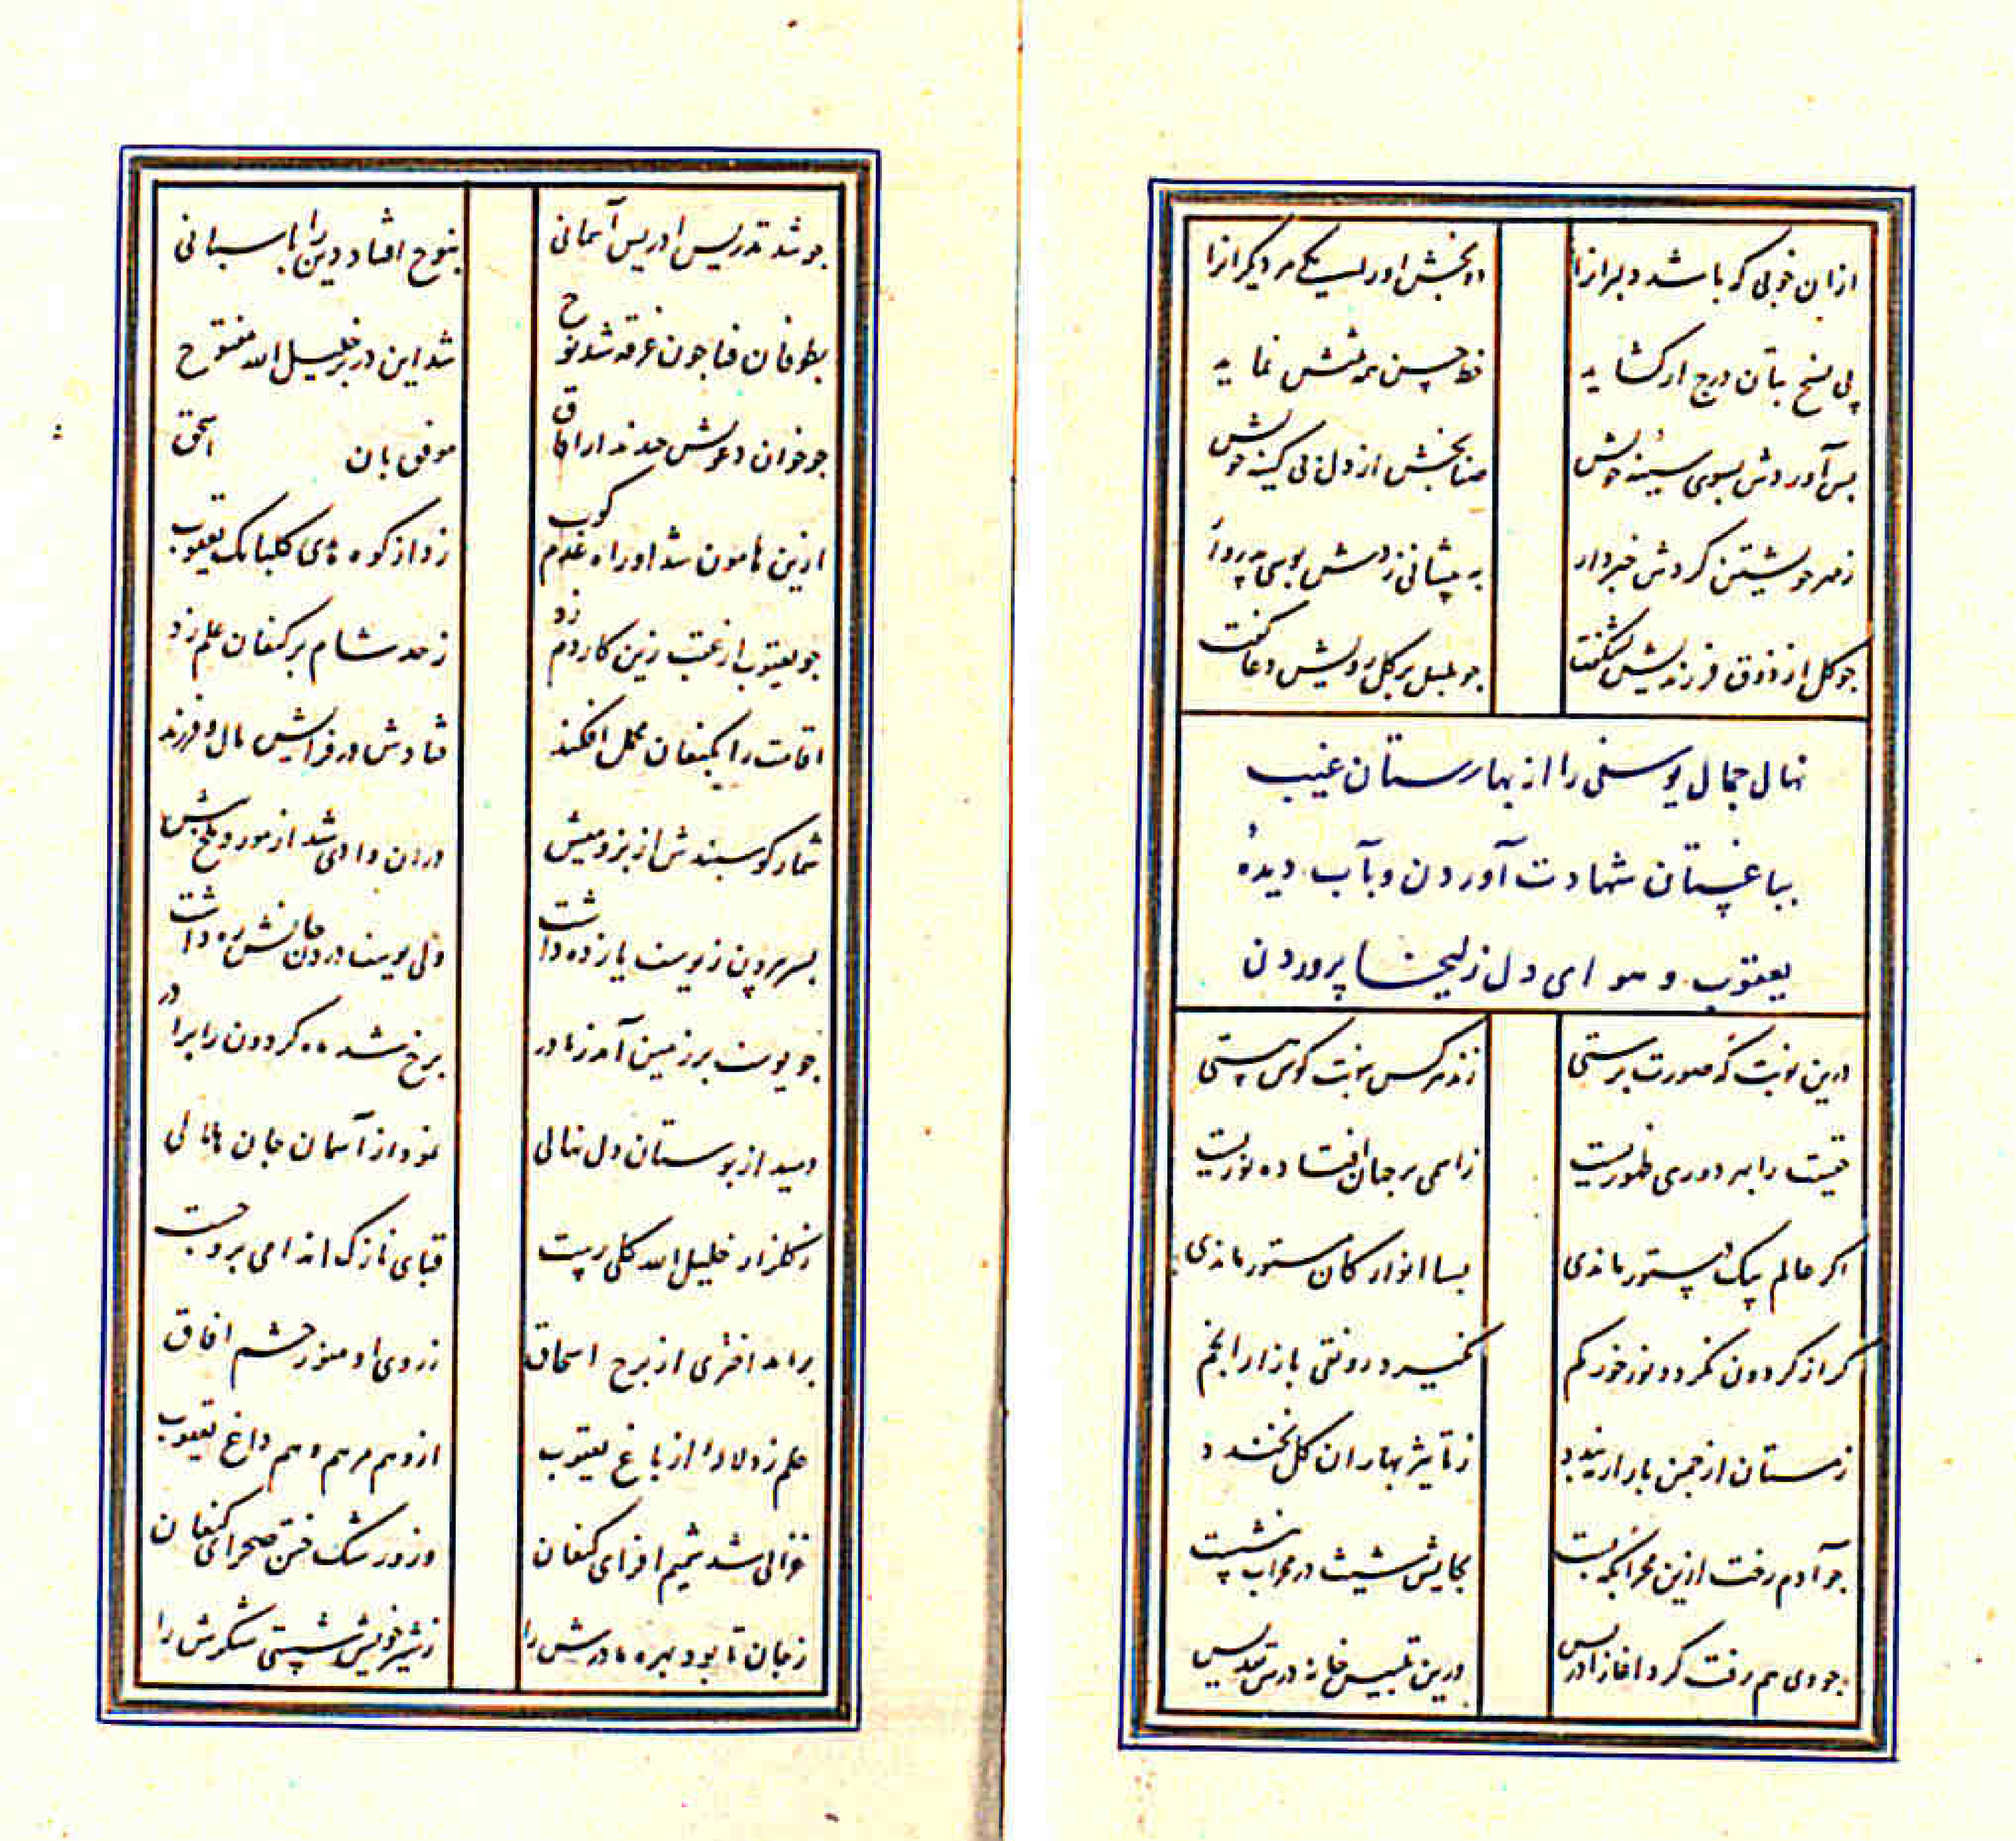 ازان خوبی که باشد دلبرانرا دو بخش اورا یکی مر دیگرانرا
پی نسخ بتان درج ار کشاید خط حسن همه نسخش نماید
پس آوردش بسوی سینهٔ خویش صفا بخش از دل بی کینه خویش
ز مهر خویشتن کردش خبردار به پیشانی زدش بوسی
جو کل از ذوق فرزندیش بشکفت جو بلبل بر کل رویش دعا گفت
نهال جمال یوسفی را از بهارستان غیب
بباغستان شهادت آوردن و بآب دیدهٔ
یعقوب و هوای دل زلیخا پروردن
درین نوبت که صورت پرستی زند هر کس بنوبت کوس هستی
حقیقت را بهر دوری ظهوریست ز اسمی بر جهان افتاده نوریست
اکر عالم بیک دستور ماندی بسا انوار کان مستور ماندی
کر از کردون نکردد نور خور کم نکیرد رونقی بازار انجم
زمستان از چمن بار ار نبندد ز تاثیر بهاران کل نخندد
جو آدم رفت ازین محرابکه بست بجایش شیث در محراب بنشست
جو وی هم رفت کرد اغاز ادریس درین تلبیس خانه درس تقدیس
جو شد تدریس ادریس آسمانی بنوح افتاد دین را پاسبانی
بطوفان فنا جون غرقه شد نوح شد این در بر خلیل الله مفتوح
جو خوان دعوتش جدند ار افاق موفق بان اسحق
ازین هامون شد او راه عدم کوب زد از کوه هدی کلبانک یعقوب
جو یعقوب از عقب زین کار دم زد ز حد شام بر کنعان علم زد
اقامت را بکنعان محمل افکند فتادش در فزایش مال و فرزند
شمار کوسبندش از بز و میش دران وادی شد از مور و ملخ بیش
بسر بیرون ز یوسف یازده داشت ولی یوسف درون جانش ره داشت
جو یوسف بر زمین آمد ز مادر برخ شد ماه کردون را برادر
دمید از بوستان دل نهالی نمود از آسمان جان هلالی
ز کلزار خلیل الله کلی رست قبای نازک اندامی برو جست
برامد اختری از برج اسحاق ز روی او منور جشم افاق
علم زد لاله از باغ یعقوب ازو هم مرهم و هم داغ یعقوب
غزالی شد شمیم افزای کنعان وزو رشک ختن صحرای کنعان
ز جان تا بود بهره مادرش را ز شیر خویش شستی شکرش را